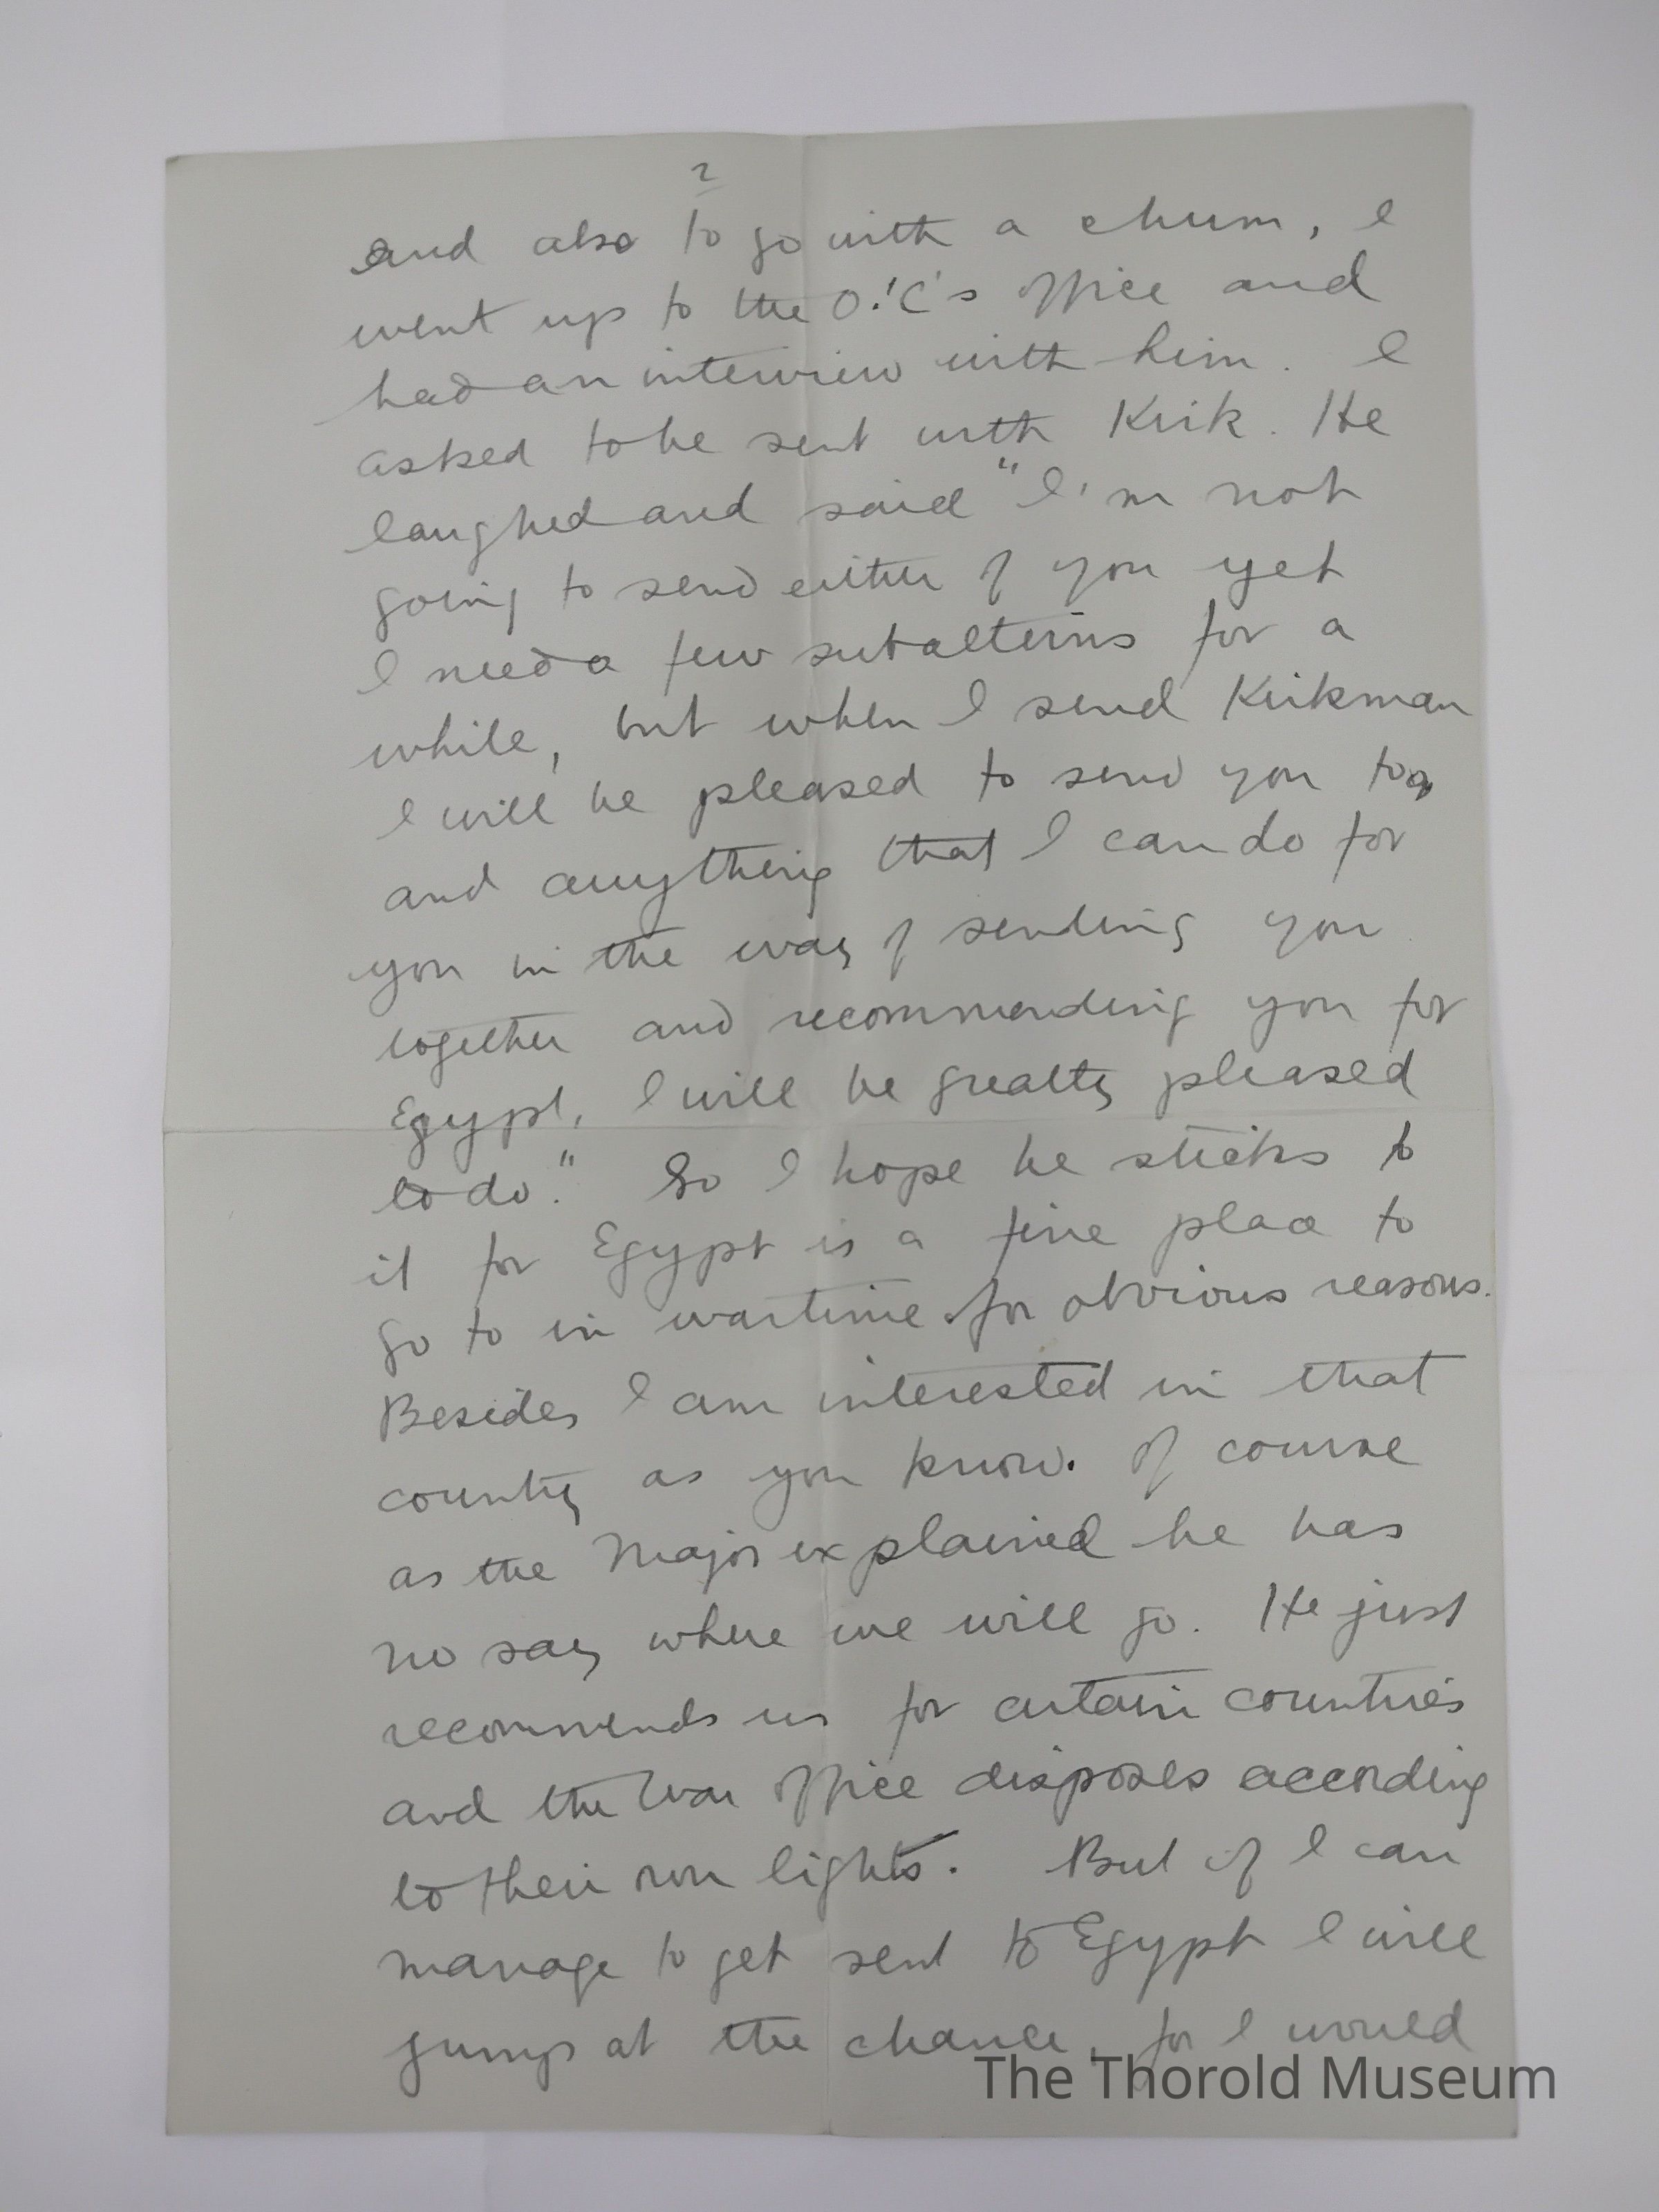 2
and also to go with a chum, I
went up to the O.'C's office and
had an interview with him. I
asked to be sent with Kirk. He
laughed and said "I'm not
going to send either of you yet
I need a few subalterns for a
while, but when I send Kirkman
I will be pleased to send you too,
and anything that I can do for
you in the way of sending you
together and recommending you for
Egypt, I will be greatly pleased
to do." So I hope he sticks to
it for Egypt is a fine place to
go to in wartime for obvious reasons.
Besides I am interested in that
country as you know. Of course
as the Major explained he has
no say where we will go. He just
recommends us for certain countries
and the War Office disposes according
to their own lights. But if I can
manage to get sent to Egypt I will
jump at the chance, for I would
The Thorold Museum